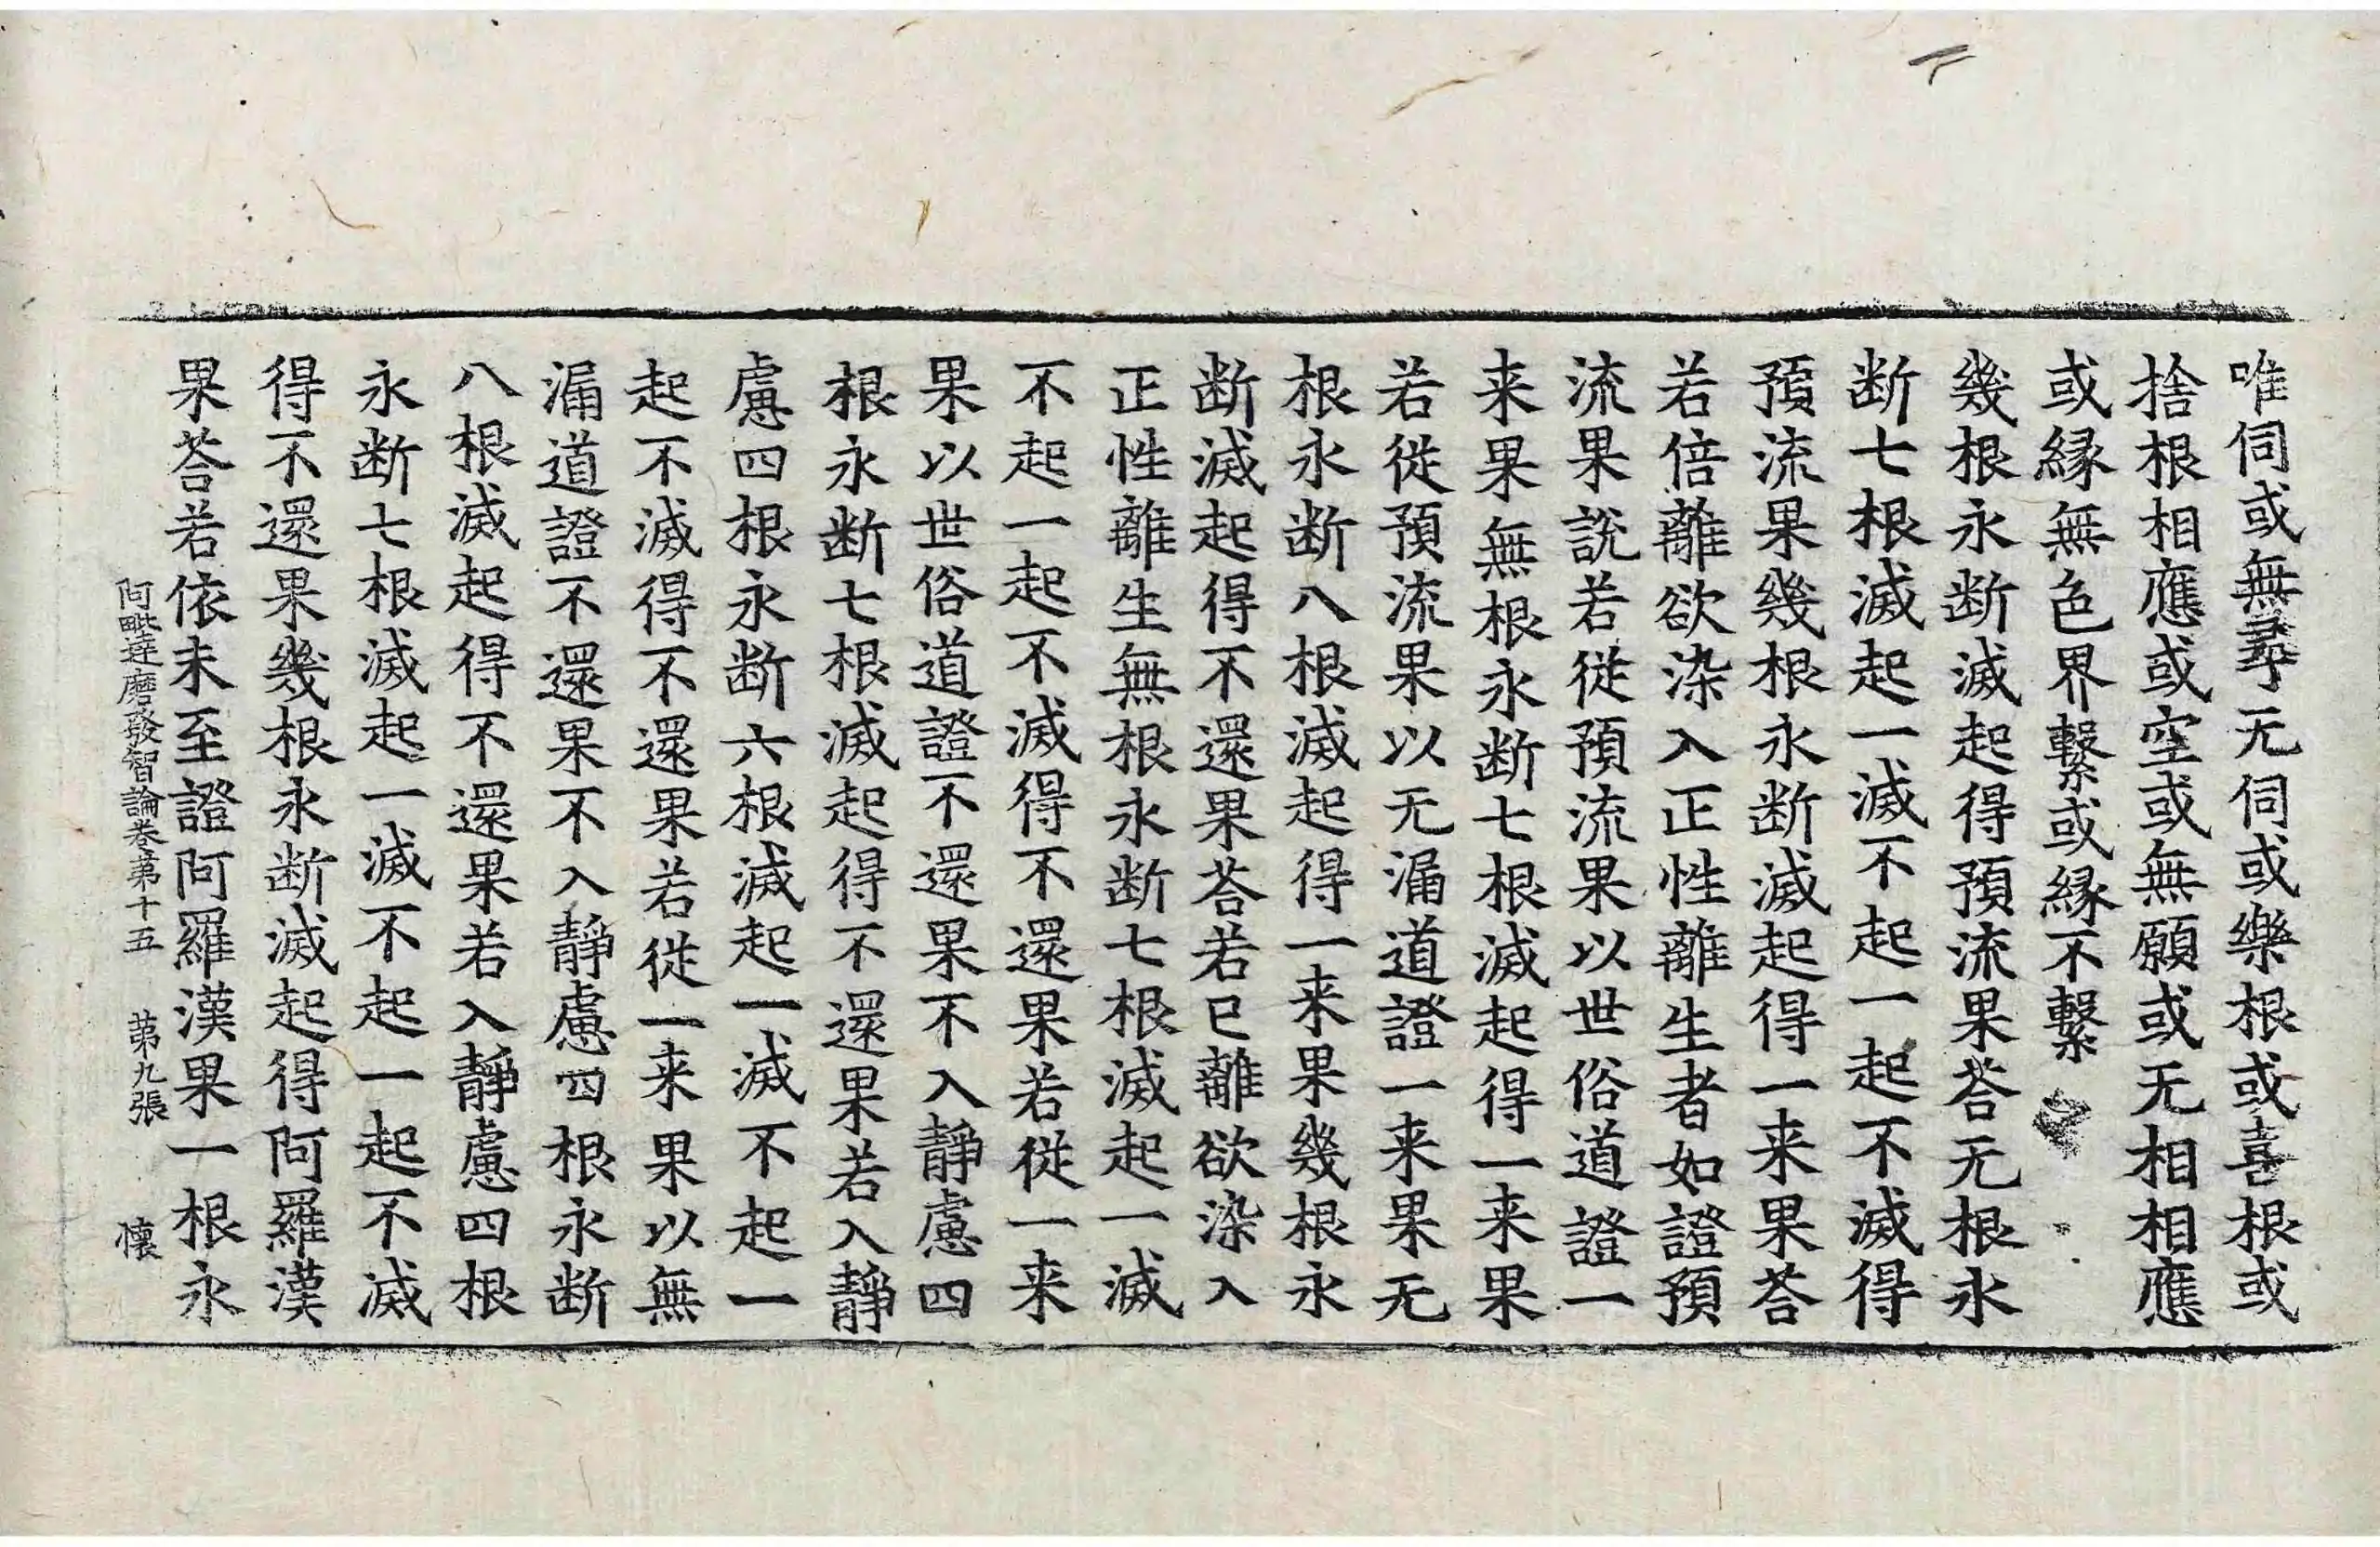 唯伺或無尋无伺或樂根或喜根或
捨根相應或空或無願或无相相應
或縁無色界繫或縁不繫
幾根永断滅起得預流果荅无根永
断七根滅起一滅不起一起不滅得
預流果幾根永断滅起得一来果荅
若倍離欲染入正性離生者如證預
流果說若從預流果以世俗道證一
来果無根永断七根滅起得一来果
若從預流果以无漏道證一来果无
根永断八根滅起得一来果幾根永
断滅起得不還果荅若已離欲染入
正性離生無根永断七根滅起一滅
不起一起不滅得不還果若從一来
果以世俗道證不還果不入靜慮四
根永断七根滅起得不還果若入靜
慮四根永断六根滅起一滅不起一
起不滅得不還果若從一来果以無
漏道證不還果不入靜慮四根永断
八根滅起得不還果若入靜慮四根
永断七根滅起一滅不起一起不滅
得不還果幾根永断滅起得阿羅漢
果荅若依未至證阿羅漢果一根永
阿毗達磨發智論卷第十五 第九張 懷